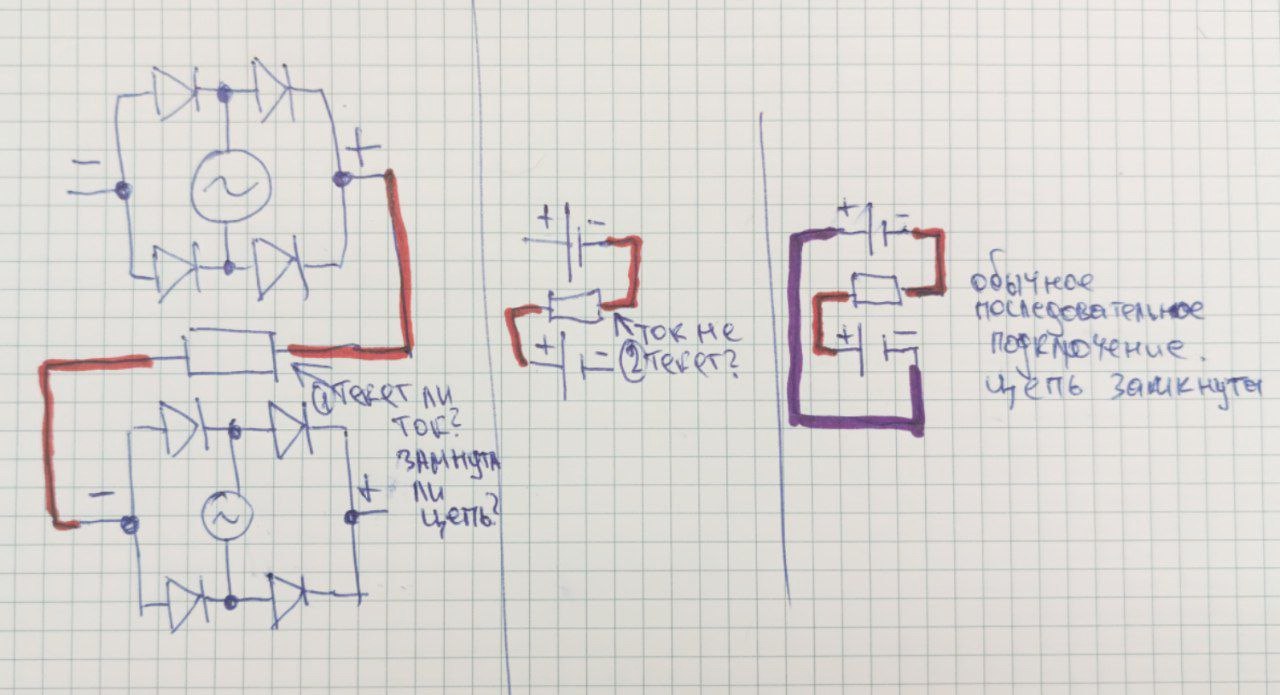 −
+
① течет ли
ток?
замнута
ли
цепь?
−
+
+
−
ток не
② течет?
+
−
+
−
+
−
обычное
последовательное
подключение.
цепь замкнута